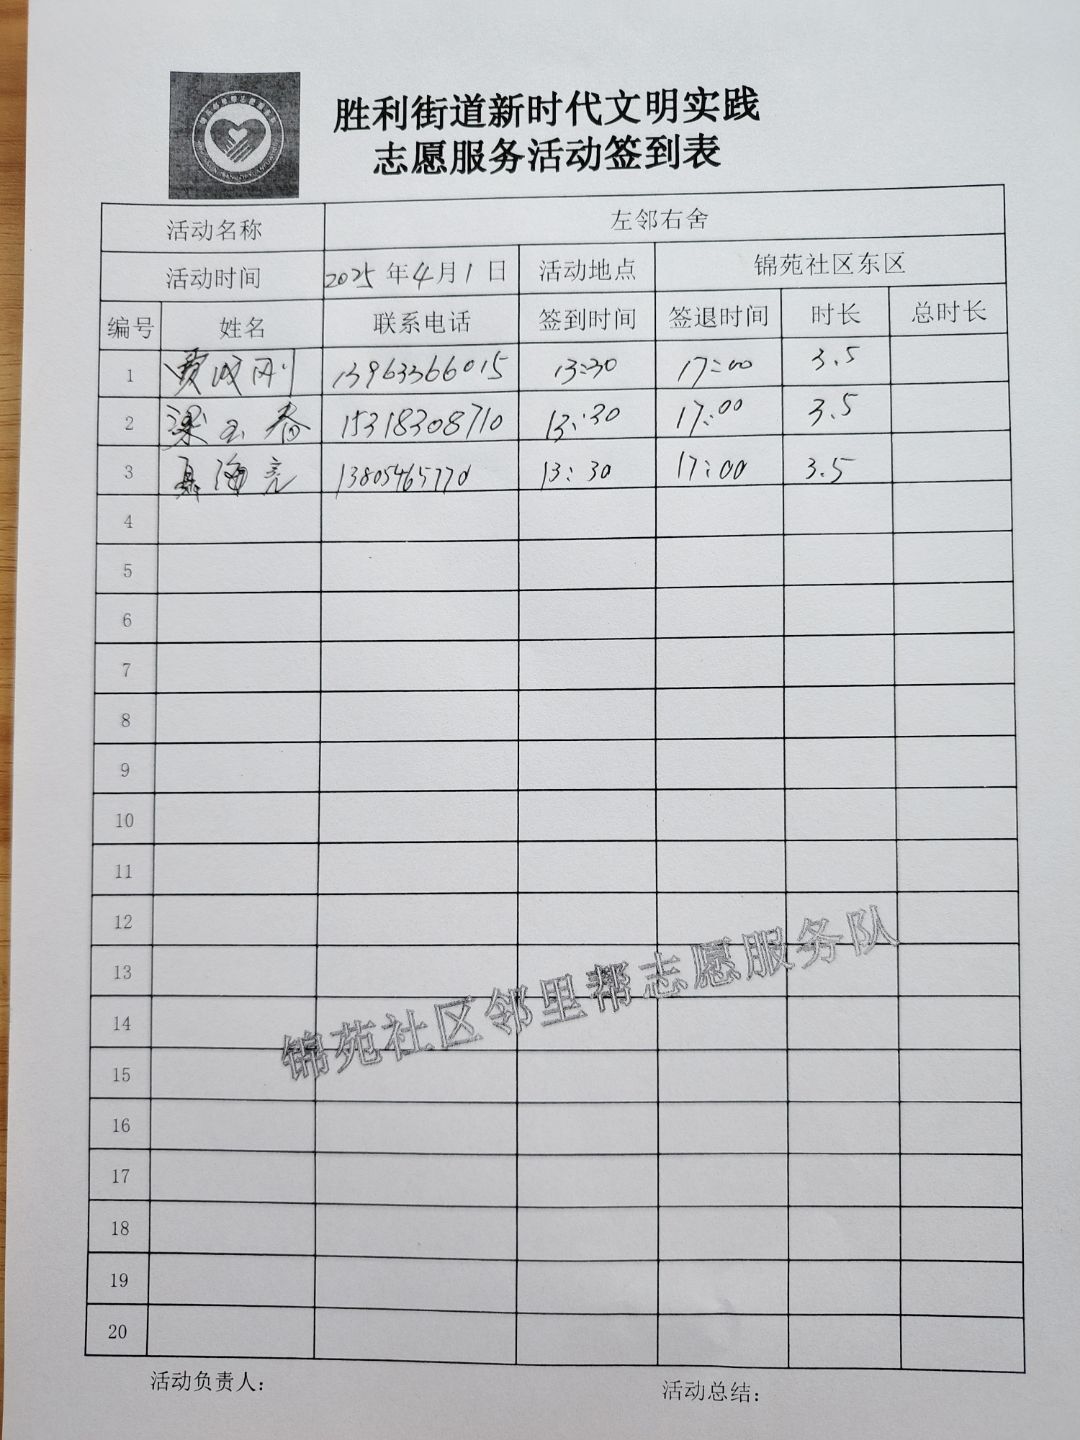 胜利街道新时代文明实践
志愿服务活动签到表
活动名称 左邻右舍
活动时间 2025年4月1日 活动地点 锦苑社区东区
编号 姓名 联系电话 签到时间 签退时间 时长 总时长
1 贾成刚 13963366015 13:30 17:00 3.5
2 梁玉春 15318308710 13:30 17:00 3.5
3 聂海亮 13805465770 13:30 17:00 3.5
4
5
6
7
8
9
10
11
12
13
14
15
16
17
18
19
20
锦苑社区邻里帮志愿服务队
活动负责人: 活动总结: